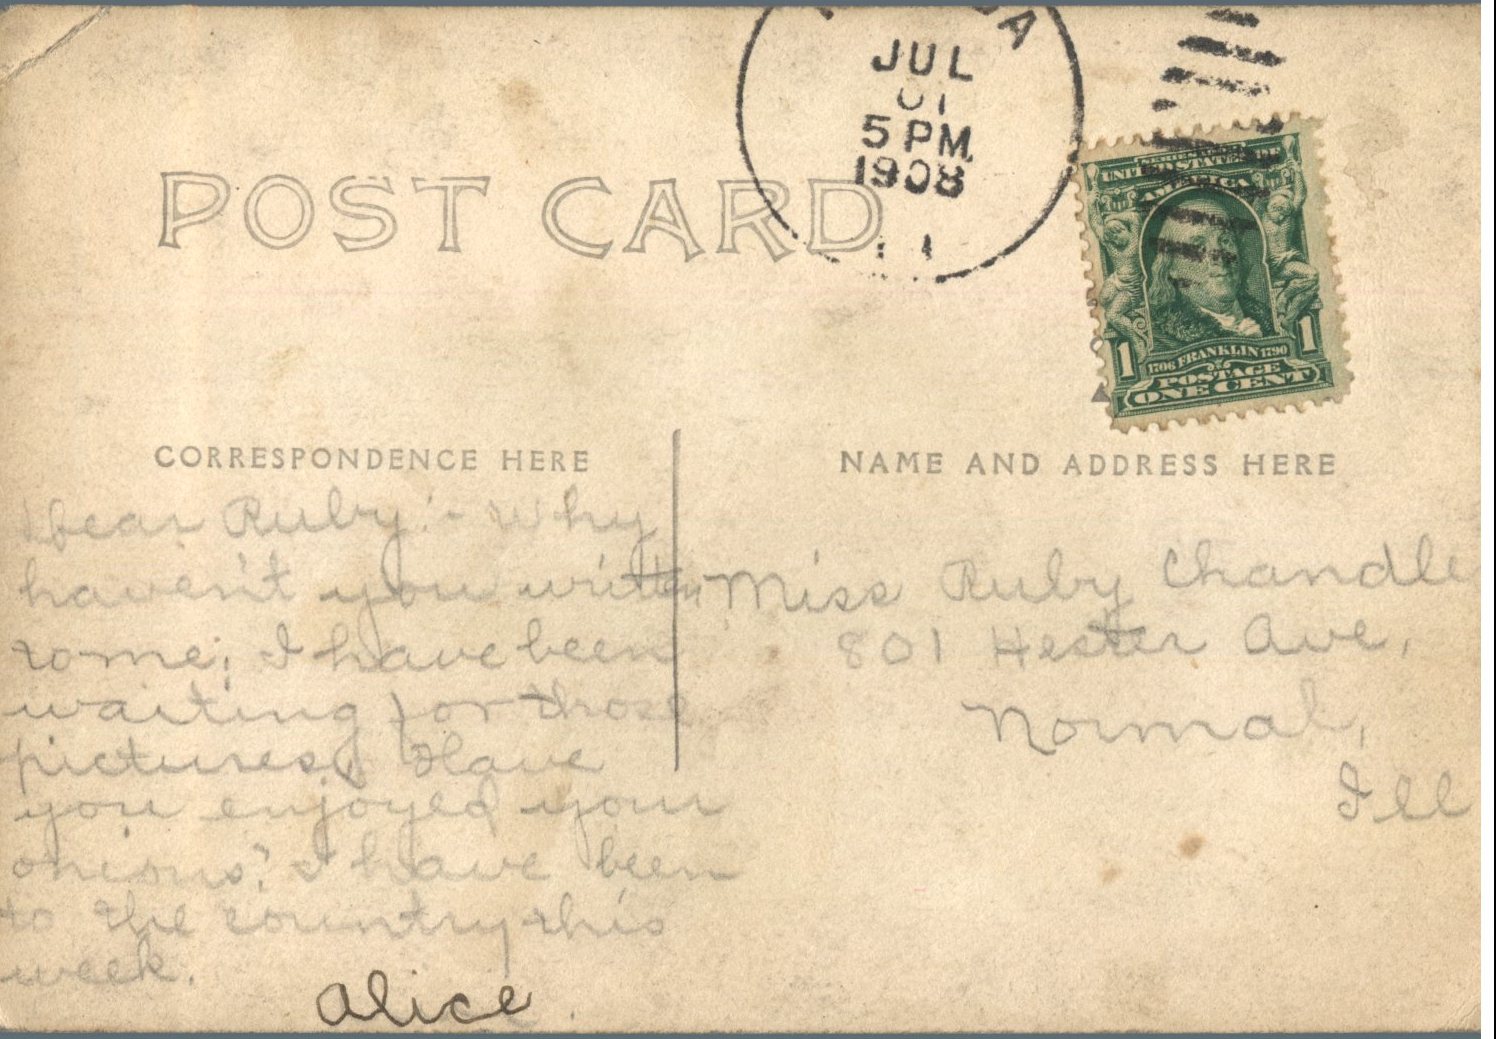 JUL
01
5 PM
1908
POST CARD
UNITED STATES OF
AMERICA
1 1
1706 FRANKLIN 1790
POSTAGE
ONE CENT
CORRESPONDENCE HERE
Dear Ruby:- Why
haven't you written
to me; I have been
waiting for those
pictures. Have
you enjoyed your
onions? I have been
to the country this
week.
Alice
NAME AND ADDRESS HERE
Miss Ruby Chandle
801 Hester Ave,
Normal,
Ill